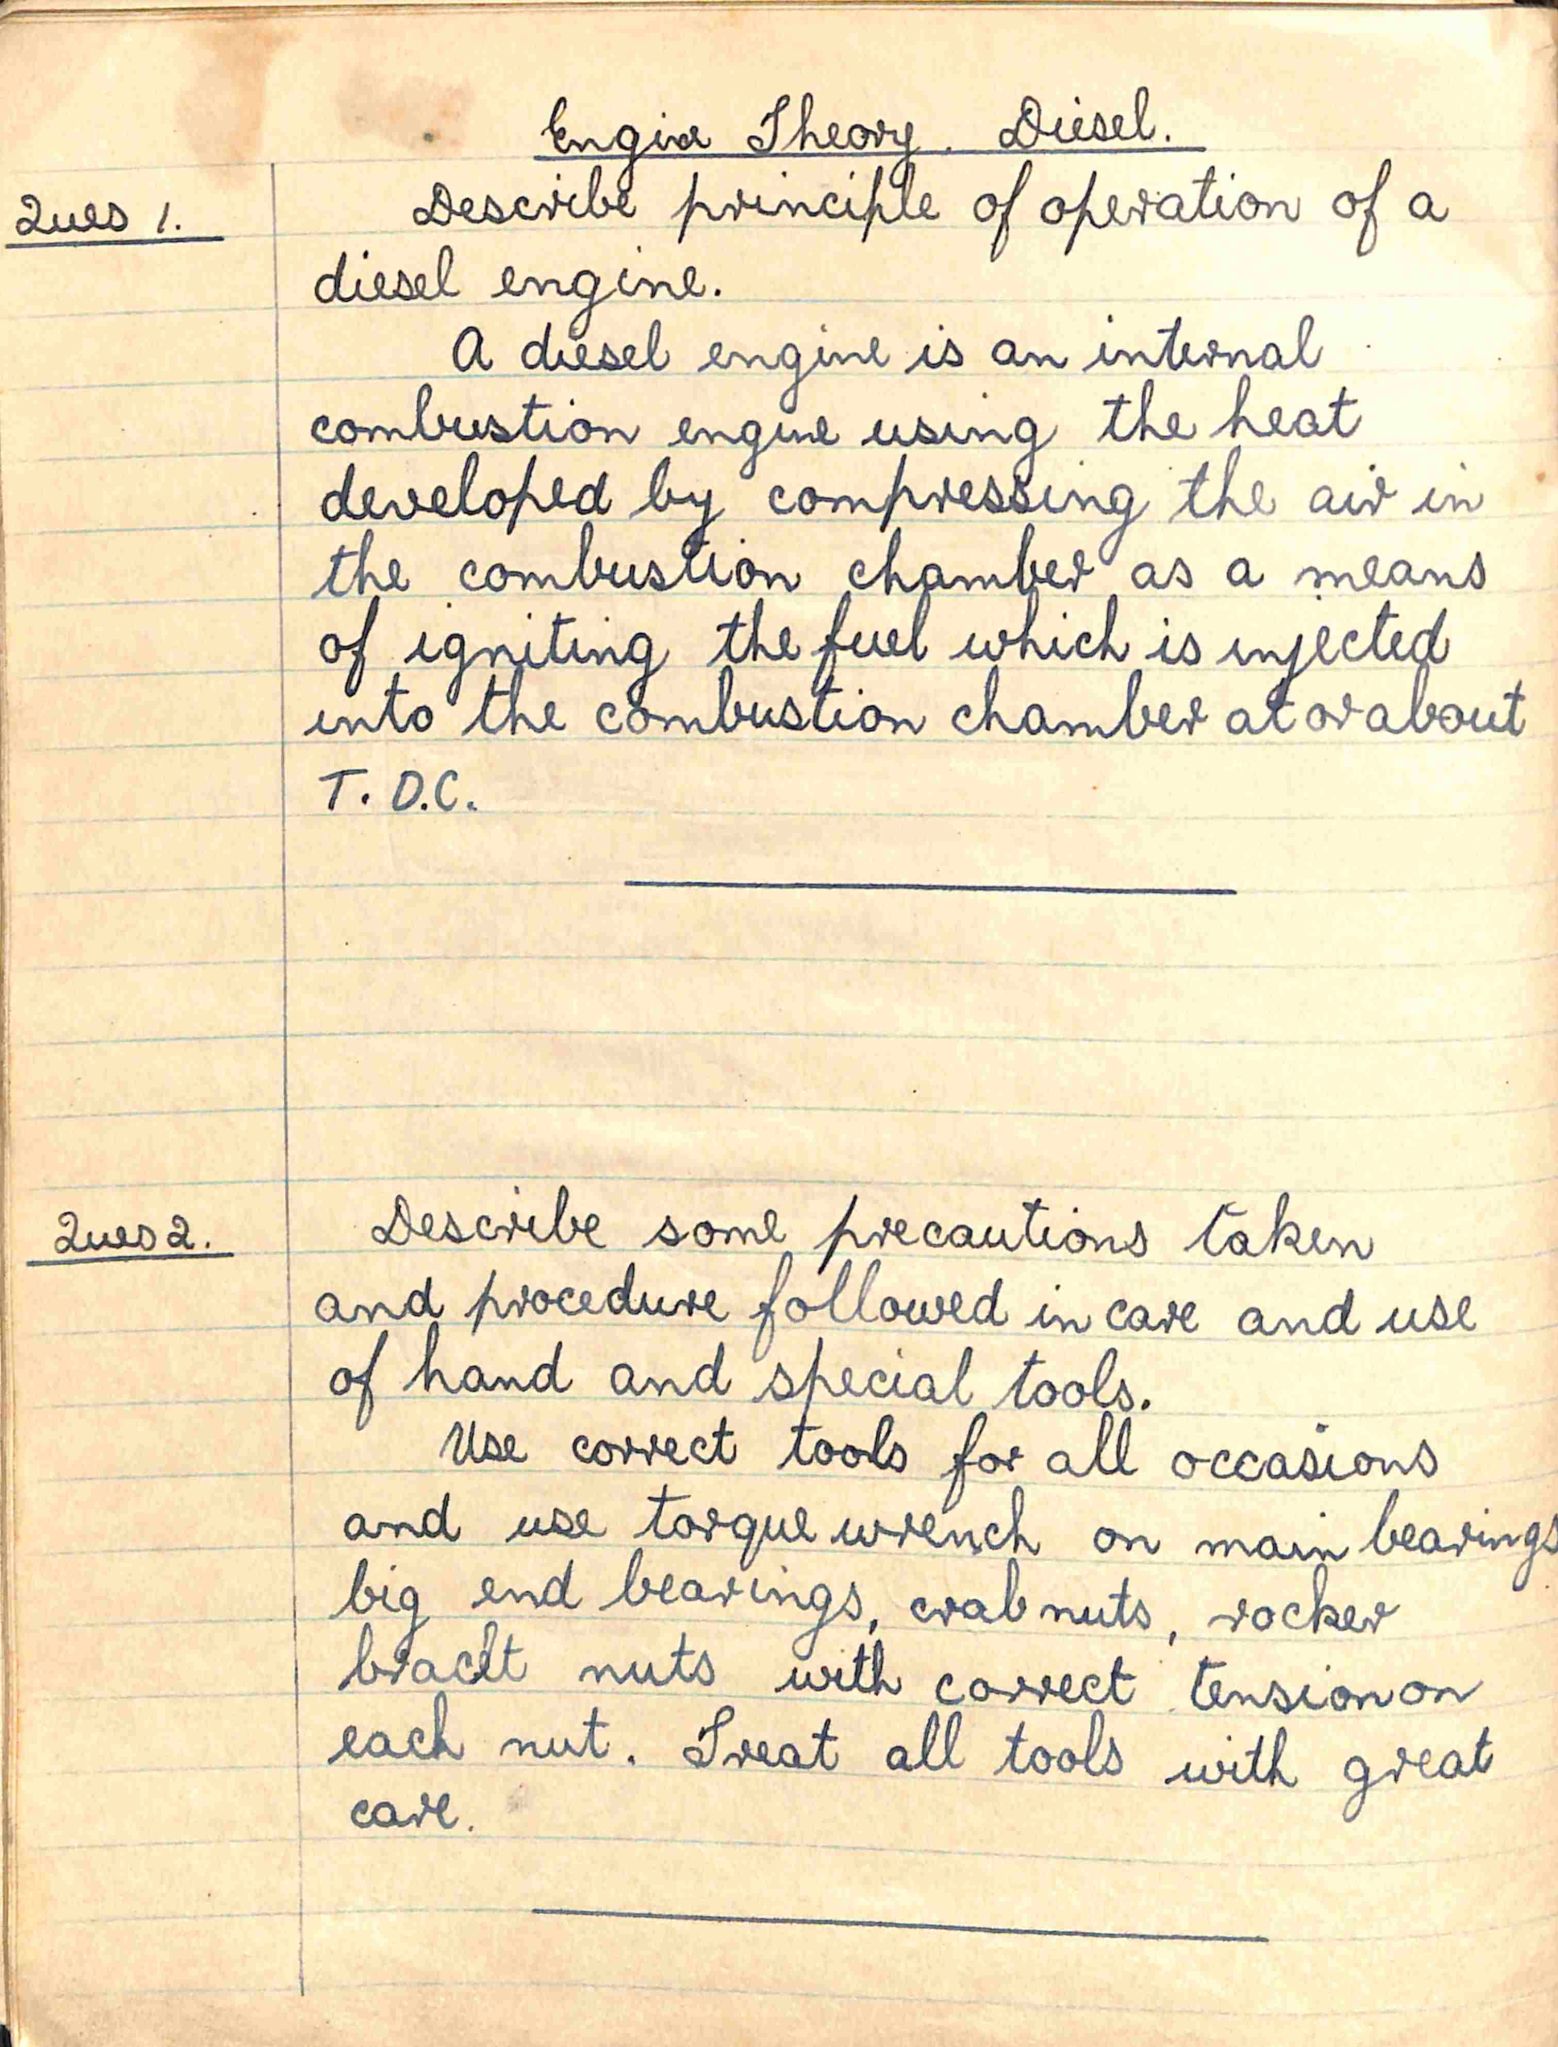 Engine Theory. Diesel.
Ques 1. Describe principle of operation of a
diesel engine.
A diesel engine is an internal
combustion engine using the heat
developed by compressing the air in
the combustion chamber as a means
of igniting the fuel which is injected
into the combustion chamber at or about
T.D.C.
Ques 2. Describe some precautions taken
and procedure followed in care and use
of hand and special tools.
Use correct tools for all occasions
and use torque wrench on main bearings
big end bearings, crab nuts, rocker
nuts with correct tension on
each nut. Treat all tools with great
care.